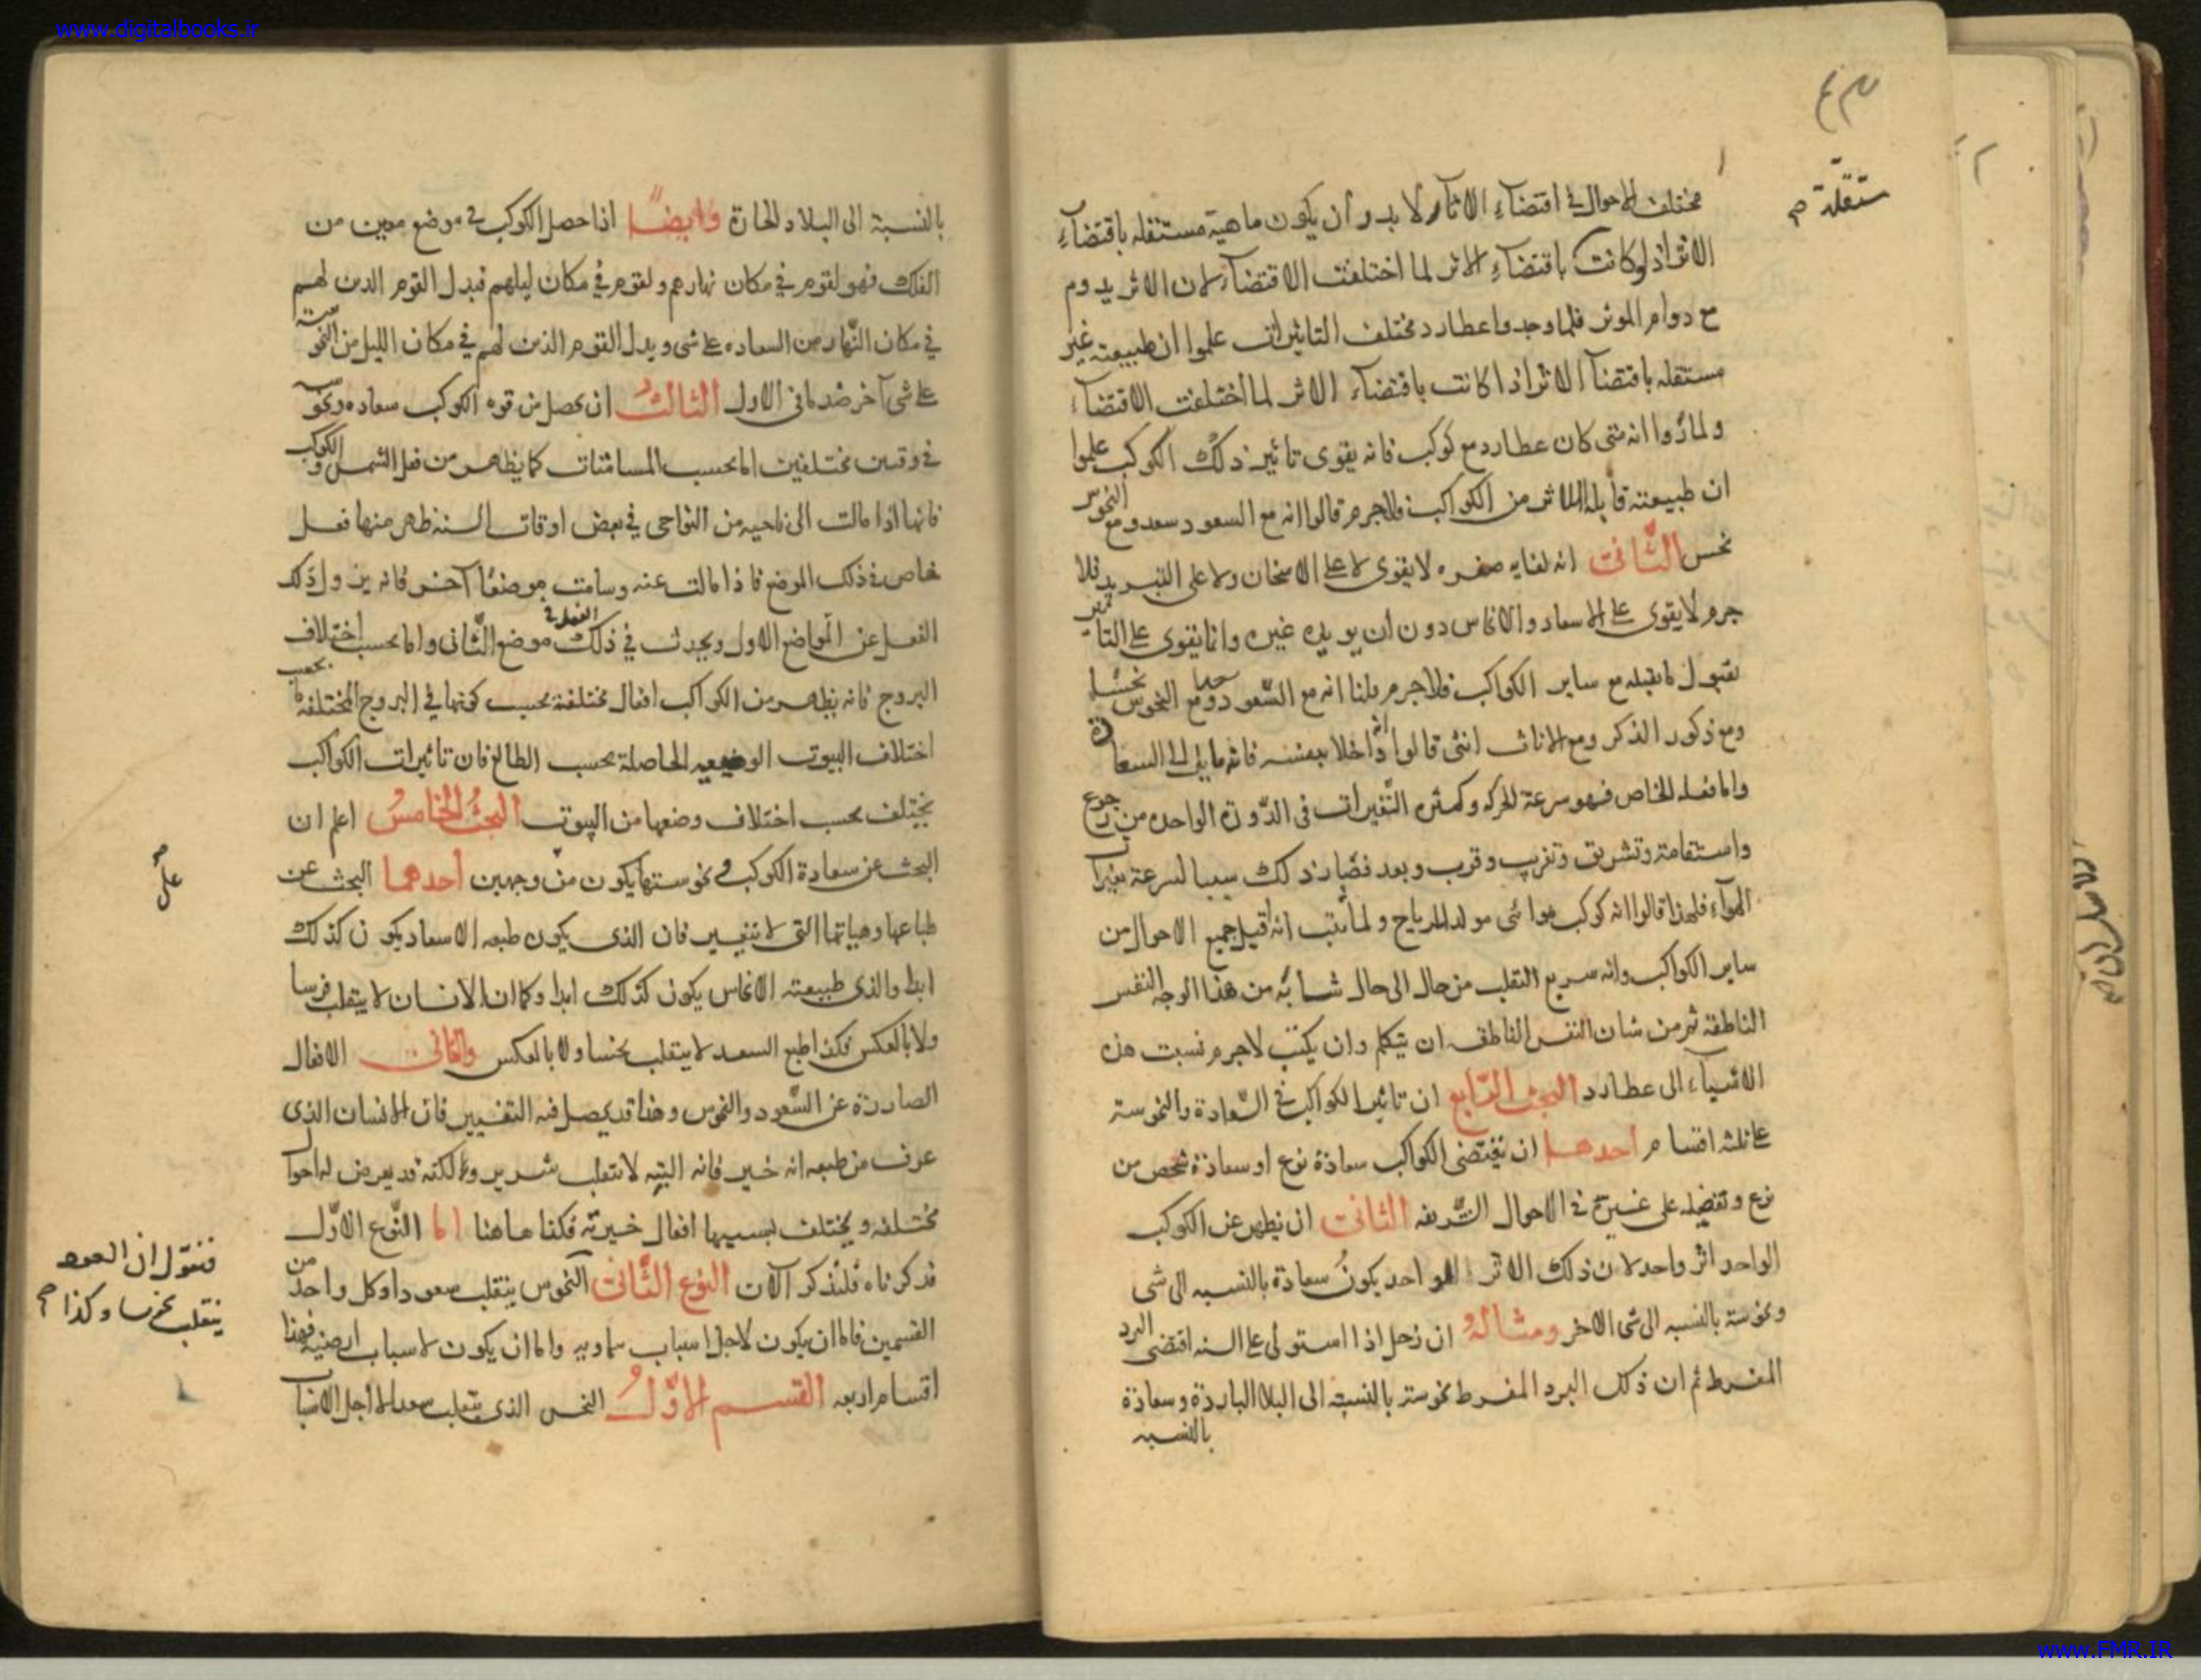 www.digitalbooks.ir
مستقلة صح
مختلف الاحوال في اقتضاء الاثار لا بد وأن يكون ماهية مستقله باقتضاء
الاثر اذ لو كانت باقتضاء الاثر لما اختلفت الاقتضاء لان الاثر يدوم
مع دوام الموثر فلما وجدوا عطارد مختلف التاثيرات علموا ان طبيعته غير
مستقله باقتضآ الاثر اذا كانت باقتضاء الاثر لما اختلفت الاقتضاء
ولما رأوا انه متى كان عطارد مع كوكب فانه يقوى تاثير ذلك الكوكب علموا
ان طبيعته قابلة للاثر من الكواكب فلاجرم قالوا انه مع السعود سعد ومع النحوس
نحس الثانى انه لغايه صغره لا يقوى لا على الاسخان ولا على التبريد فلا
جرم لا يقوى على الاسعاد والانحاس دون أن يويده غيره وانما يقوى على التاثير
بقبول ما يقبله مع ساير الكواكب فلاجرم قلنا انه مع السعود ومع النحوس
ومع ذكور الذكر ومع الاناث انثى قالوا اذا خلا بنفسه فانه مايل الى السعادة
واما فعله الخاص فهو سرعة الحركه وكثره التغيرات في الدورة الواحده من رجوع
واستقامة وتشريق وتغريب وقرب وبعد فصار ذلك سببا لسرعة تغيرات
الهوآء فلهذا قالوا انه كوكب هوائى مولد للرياح ولما ثبت انه قبل جميع الاحوال من
ساير الكواكب وانه سريع التقلب من حال الى حال شابه من هذا الوجه النفس
الناطقة ثم من شان النفس الناطقه ان يتكلم وان يكتب لاجرم نسبت هذه
الاشياء الى عطارد البحث الرابع ان تاثير الكواكب في السعادة والنحوسة
على ثلثه اقسام احدها ان يقتضى الكواكب سعادة نوع او سعادة شخص من
نوع وتفضيله على غيره في الاحوال الشريفه الثانى ان يظهر عن الكوكب
الواحد اثر واحد لان ذلك الاثر الواحد يكون سعادة بالنسبه الى شى
ونحوسة بالنسبه الى شى الاخر ومثاله ان زحل اذا استولى على السنه اقتضى البرد
المفرط ثم ان ذلك البرد المفرط نحوسة بالنسبة الى البلاد الباردة وسعادة
بالنسبه
بالنسبة الى البلاد الحارة وايضًا اذا حصل الكوكب في موضع معين من
الفلك فهو لقوم في مكان نهارهم ولقوم في مكان ليلهم فيدل القوم الذين لهم
في مكان النهار من السعاده على شى ويدل القوم الذين لهم في مكان الليل من النحوسة
على شى آخر ضد ما في الاول الثالث ان يحصل من قوه الكوكب سعاده ونحوسه
في وقتين مختلفين اما بحسب المسامتات كما يظهر من فعل الشمس والكواكب
فانها اذا مالت الى ناحيه من النواحى في بعض اوقات السنه ظهر منها فعل
خاص في ذلك الموضع فاذا مالت عنه وسامت موضعًا آخر فانه يزول ذلك
الفعل عن المواضع الاول ويحدث في ذلك الفعل في موضع الثانى واما بحسب اختلاف
البروج فانه يظهر من الكواكب افعال مختلفة بحسب كونها في البروج المختلفة بحسب
اختلاف البيوت الوضعيه الحاصلة بحسب الطالع فان تاثيرات الكواكب
يختلف بحسب اختلاف وضعها من البيوت البحث الخامس اعلم ان
البحث عن سعادة الكوكب ونحوستها يكون من وجهين احدهما البحث عن
طباعها وهياتها التى لا يتغير فان الذى يكون طبعه الاسعاد يكون كذلك
ابدا والذى طبيعته الانحاس يكون كذلك ابدا وكما ان الانسان لا ينقلب فرسا
ولا بالعكس فكذا طبع السعد لا ينقلب نحسا ولا بالعكس والثانى الافعال
الصادرة عن السعود والنحوس وهذا قد يحصل فيه التغيير فان الانسان الذى
عرف من طبعه انه خير فانه البته لا ينقلب شرير ولكنه قد يعرض له احوال
مختلفه ويختلف بسببها افعال خيرته فكذا هاهنا اما النوع الاول
قد ذكرناه فلنذكر الآن النوع الثانى النحوس ينقلب سعودا وكل واحد من
القسمين فاما ان يكون لاجل اسباب سماويه واما ان يكون لاسباب ارضية فهذا
اقسام اربعه القسم الاول النحس الذى ينقلب سعدا لاجل الاسباب
فنقول ان السعود
ينقلب نحسا وكذا صح
www.FMR.IR